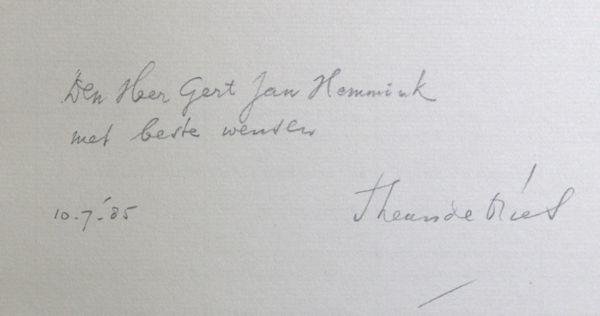 Den Heer Gert Jan Hemmink
met beste wensen
10.7.'85
Theun de Vries